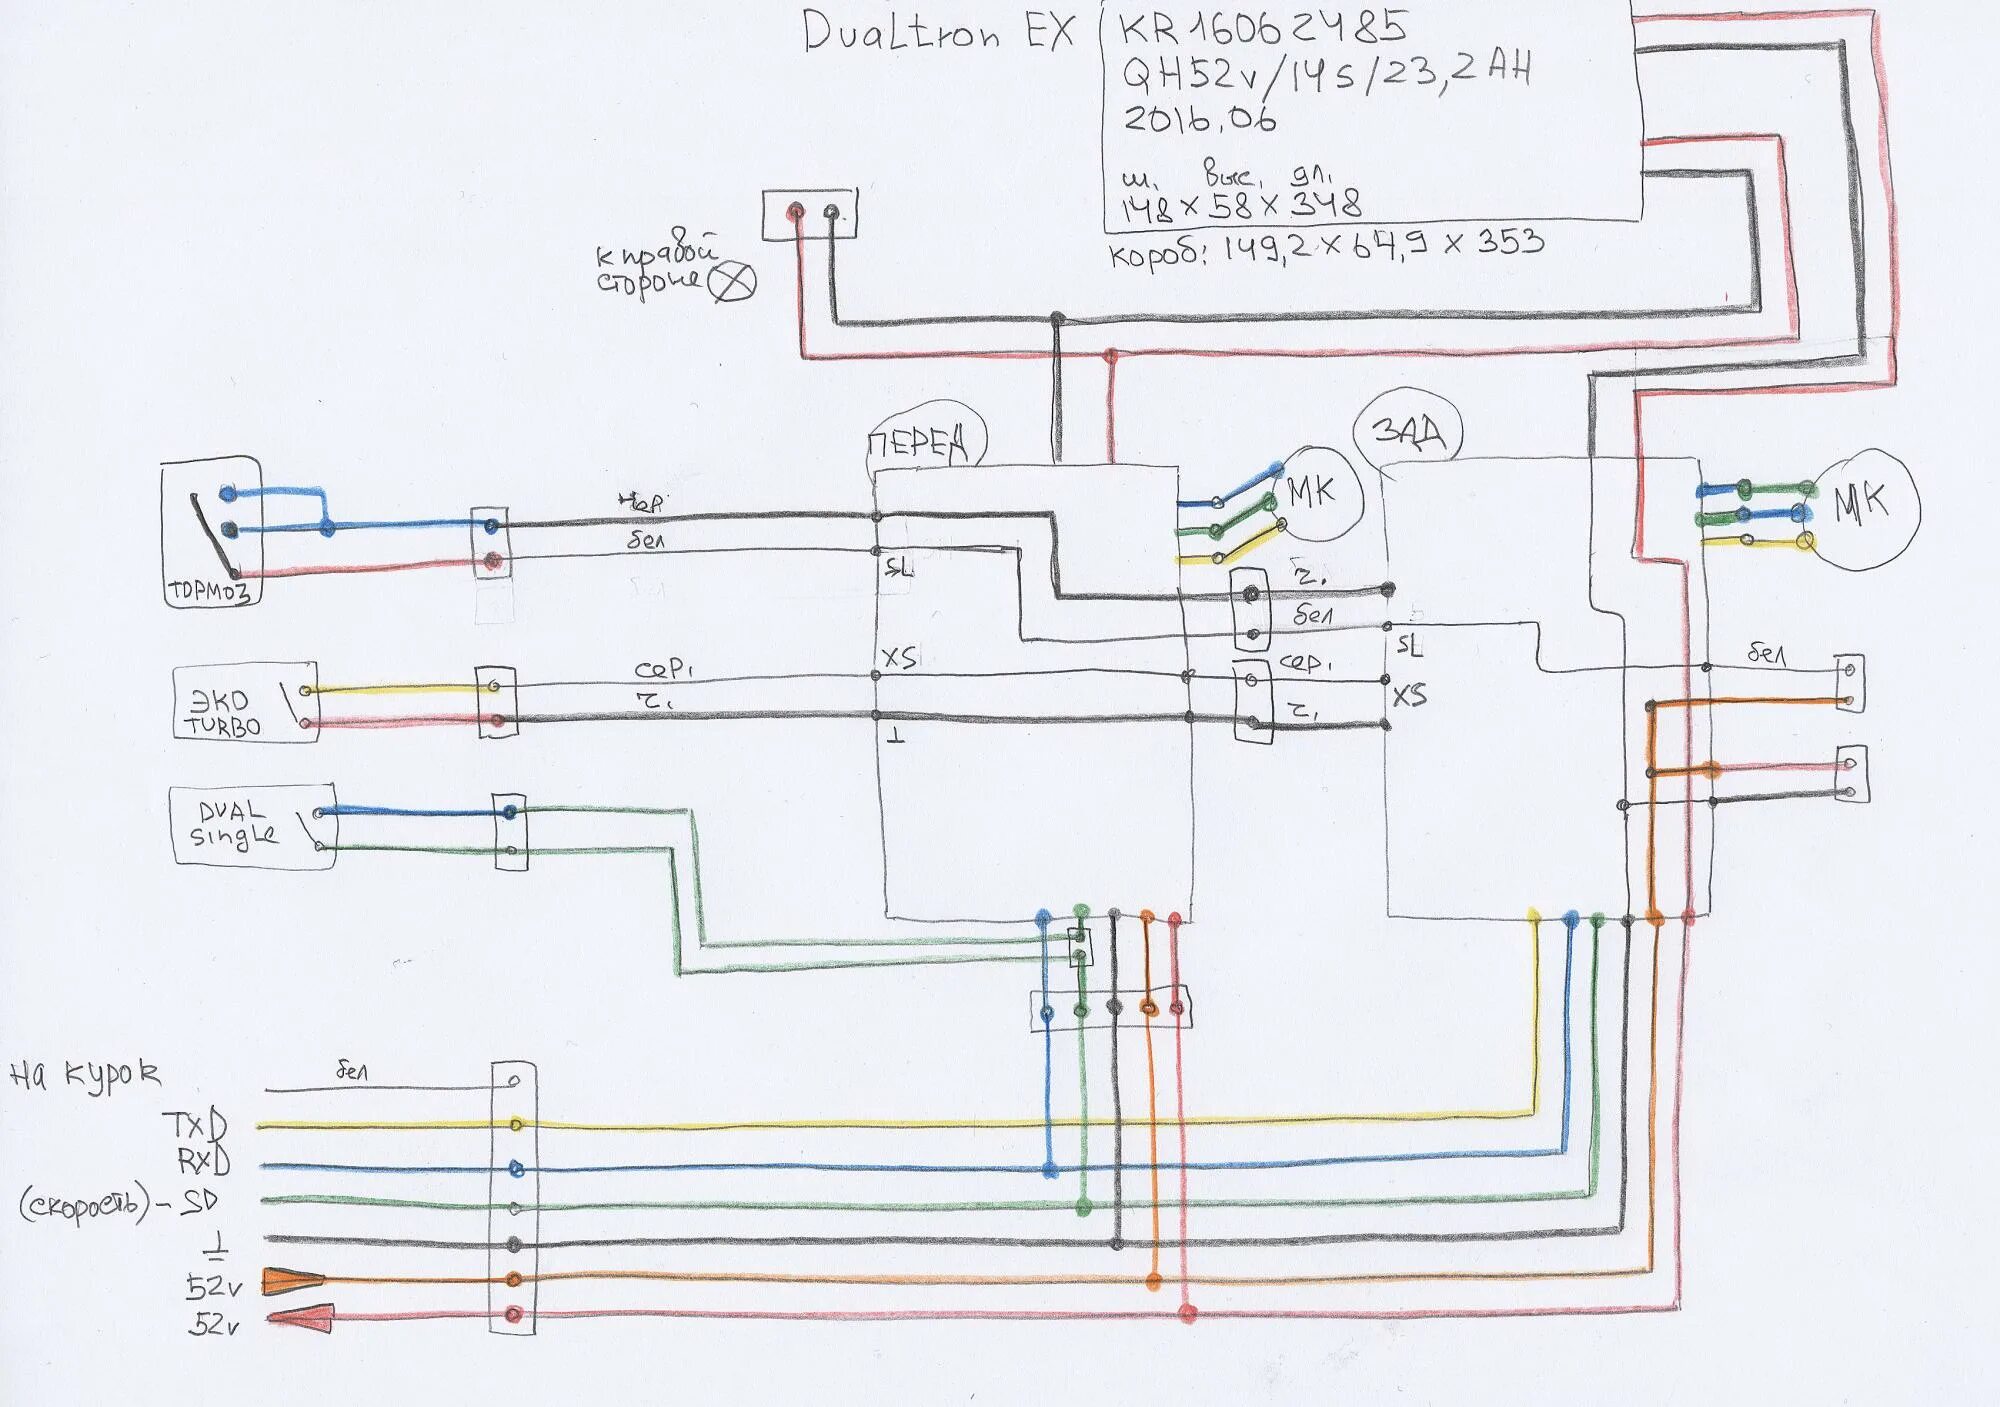 Dualtron EX
KR16062485
QH52v/14s/23,2AH
2016,06
ш. выс, дл,
148 x 58 x 348
короб: 149,2 x 64,9 x 353
к правой
стороне
ПЕРЕД
ЗАД
МК
МК
чер.
бел
SL
ТОРМОЗ
ч.
бел
SL
бел
XS
сер,
ч.
⊥
сер,
ч.
XS
ЭКО
TURBO
DUAL
single
на курок
бел
TXD
RXD
(скорость) - SD
⊥
52v
52v